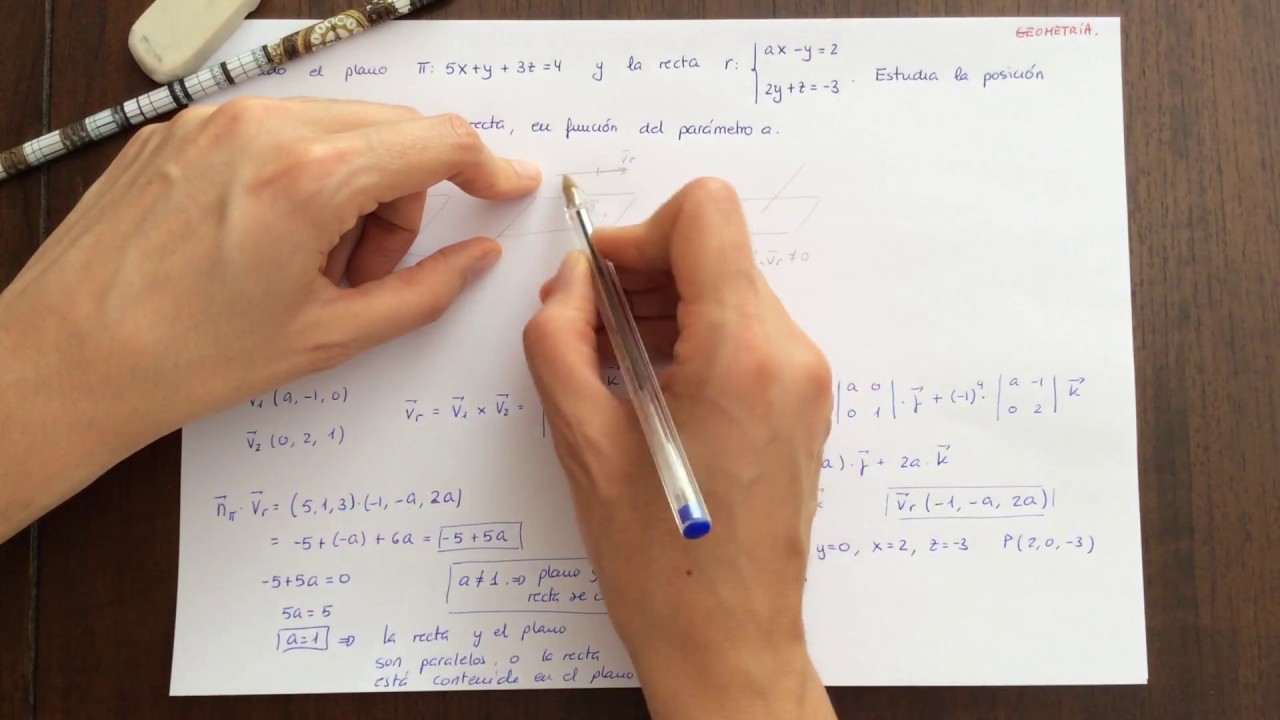 GEOMETRÍA.
el plano π: 5x+y+3z=4 y la recta r: { ax-y=2
2y+z=-3 . Estudia la posición
recta, en función del parámetro a.
v⃗r
·v⃗r≠0
v⃗1 (a,-1,0)
v⃗2 (0,2,1)
v⃗r = v⃗1 × v⃗2 = |
k⃗
|a 0
0 1| · j⃗ + (-1)⁴· |a -1
0 2| k⃗
a)·j⃗ + 2a·k⃗
n⃗π·v⃗r = (5,1,3)·(-1,-a,2a)
= -5+(-a)+6a = -5+5a
v⃗r (-1,-a,2a)
y=0, x=2, z=-3 P(2,0,-3)
-5+5a=0
5a=5
a=1 ⇒ la recta y el plano
son paralelos, o la recta
está contenida en el plano
a≠1 ⇒ plano y
recta se c